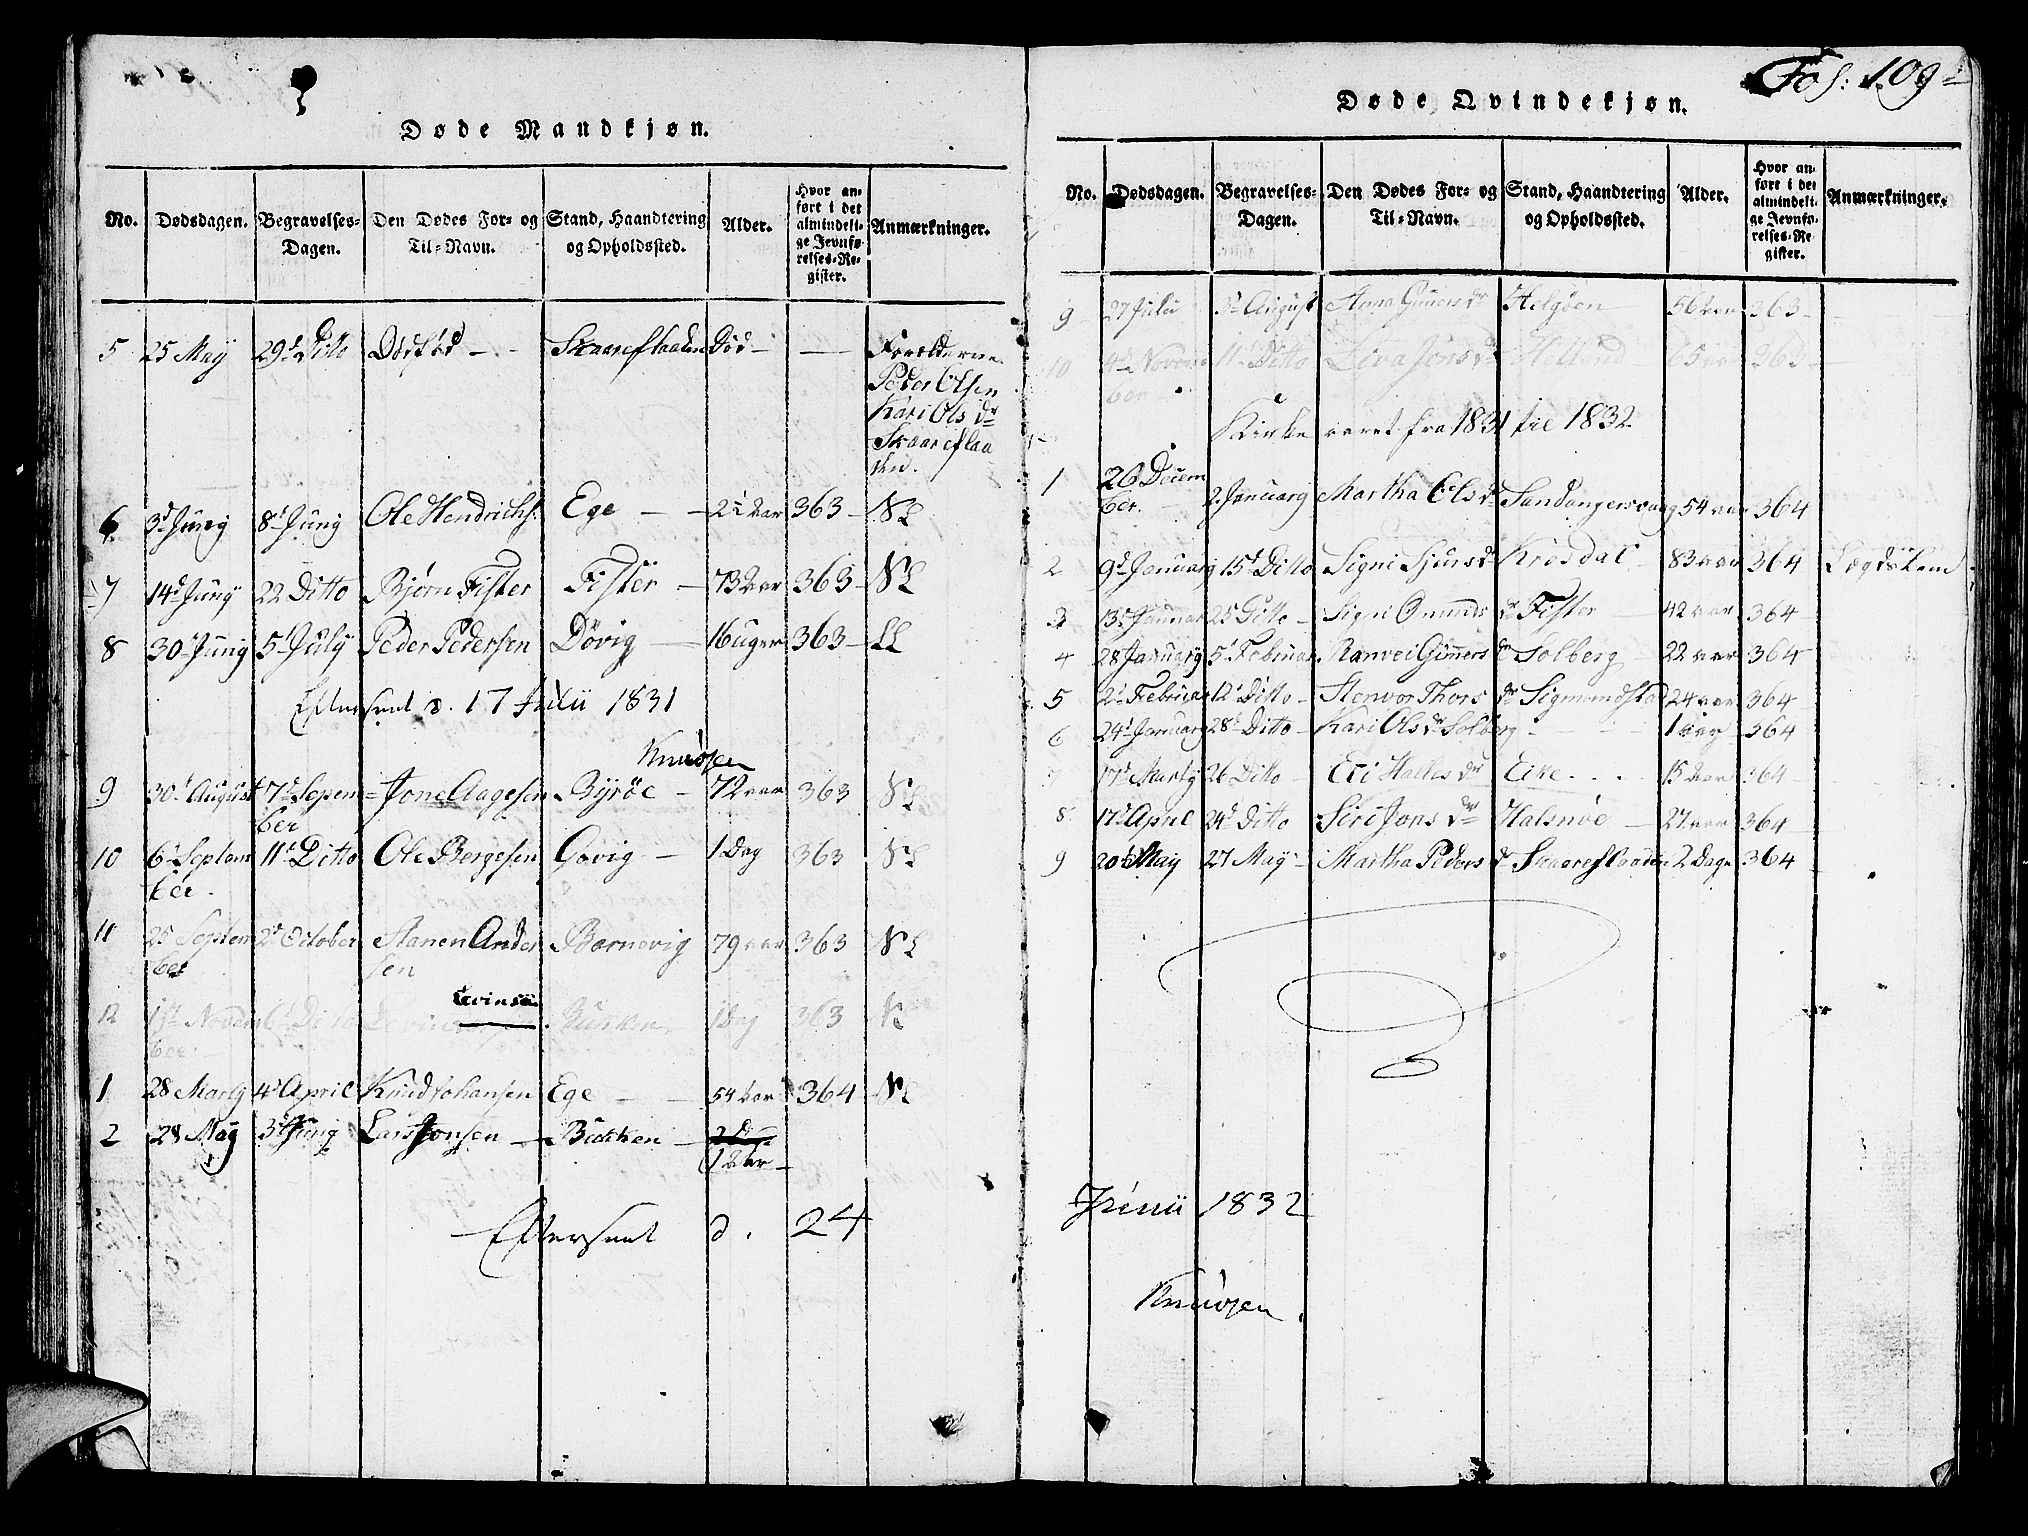 Døde Mandkjøn.
No. Dødsdagen. Begravelses-Dagen. Den Dødes For- og Til-Navn. Stand, Haandtering og Opholdssted. Alder. Hvor anført i det almindelige Jevnførelses-Register. Anmærkninger.
5 25 May 29d Ditto Dødfød - Skaareflaaten Død - — Forælderne
Peder Olsen
Kari Olsdr
Skaareflaa
ten.
6 3d Juny 8d Juny Ole Hendrichs: Ege - 2½ aar 363 - NL
7 14d Juny 22 Ditto Bjørn Fister Fister - 73 aar 363 - NL
8 30 Juny 5d July Peder Pedersen Døvig - 16 uger 363 - LL
Efterseet d. 17 Julii 1831
Knudsen
9 30d August 7d Sepem Jone Aagesen Byrøe - 72 aar 363 NL
ber
10 6d Septem 11d Ditto Ole Børgesen Govig - 1 Dag 363 NL
ber.
11 25 Septem 2d October Hanen Ander Barnevig 79 aar 363 NL
ber sen
12 Novem 6d Ditto Levinsøn Bukken 1 Dag 363 N
ber
1 28 Marty 4d April Knud Johansen Ege - 54 aar 364 NL
2 28 May 3d Juny Lars Jonsen - Bukken - 2 Dage
1 aar -
Efterseet d. 24
Fol: 109
Døde Qvindekjøn.
No. Dødsdagen. Begravelses-Dagen. Den Dødes For- og Til-Navn. Stand, Haandtering og Opholdssted. Alder. Hvor anført i det almindelige Jevnførelses-Register. Anmærkninger.
9 27 Julii 3d August Anna Guners dr Helgøen 56 aar 363 -
10 4d Novem 11 Ditto Jons dr Helland 65 aar 363 -
ber
Kirke aaret fra 1831 til 1832
1 26 Decem
ber. 2 January Martha Ols dr Sandangersvaag 54 aar 364
2 9d January 15d Ditto Signi Sjurs dr Krosdal 83 aar 364 Lægdslem
3 13d Januar 25 Ditto - Signi Omunds dr Fister - 42 aar 364
4 28 January 5d Februar Ranvei Gunners dr Solberg 22 aar 364
5 2d Februar 12d Ditto - Stenvor Thors dr Sigmundstad 24 aar 364
6 24d January 28d Ditto - Kari Ols dr Solberg - 1 aar 364
7 17d Marty 26 Ditto - Eli Halles dr Eike - 15 aar 364
8 17d April 24d Ditto Siri Jons dr Halsnøe - 27 aar 364
9 20d May 27 May - Martha Peders dr Skaareflaaten 2 Dage 364
Junii 1832
Knudsen.